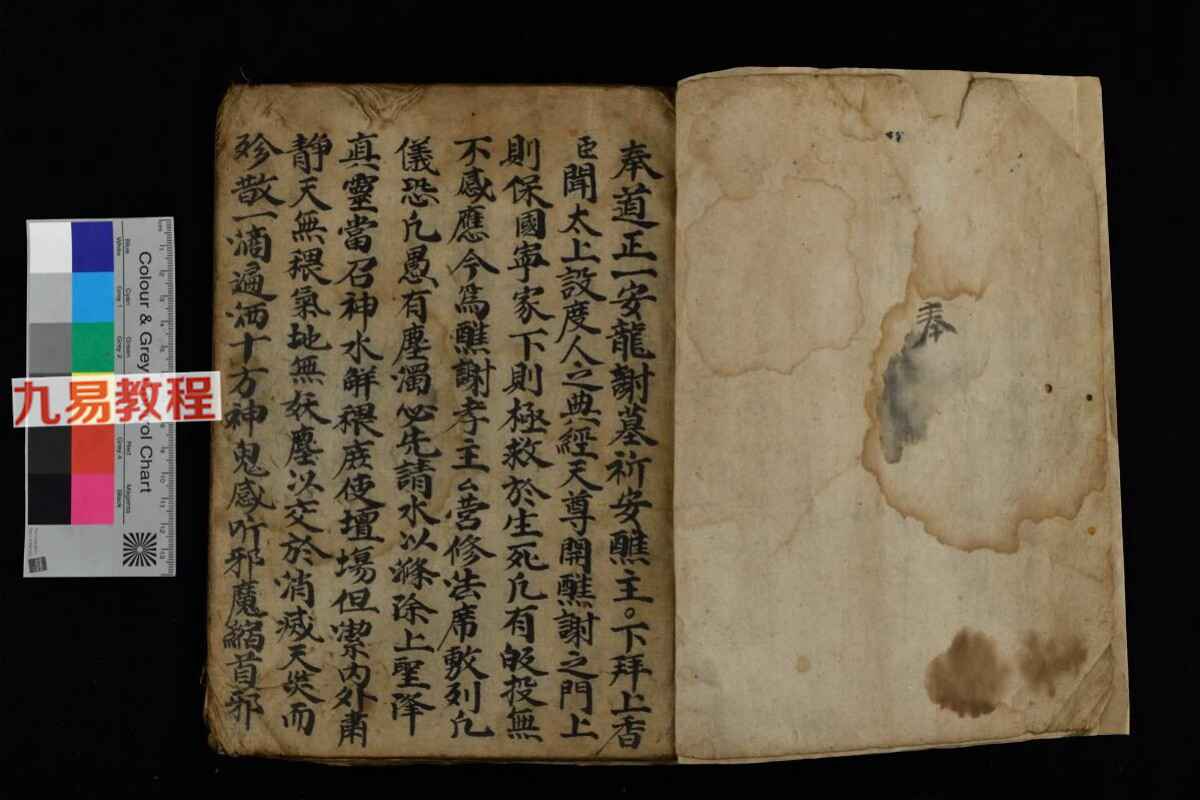 奉
奉道正一安龍謝墓祈安醮主。下拜上香
臣聞太上設度人之典經天尊開醮謝之門上
則保國寧家下則極救於生死凢有皈投無
不感應今爲醮謝孝主厶营修法席敷列凢
儀恐凢愚有塵濁必先請水以滌除上聖降
真靈當召神水觧穢庻使壇場但潔內外肅
静天無穢氣地無妖塵以交於消滅天災而
殄散一滴遍洒十方神鬼感听邪魔縮首邪
九易教程
Colour & Grey Control Chart
Blue
Cyan
White
Grey 1
Grey 2
Grey 4
Red
Magenta
Black